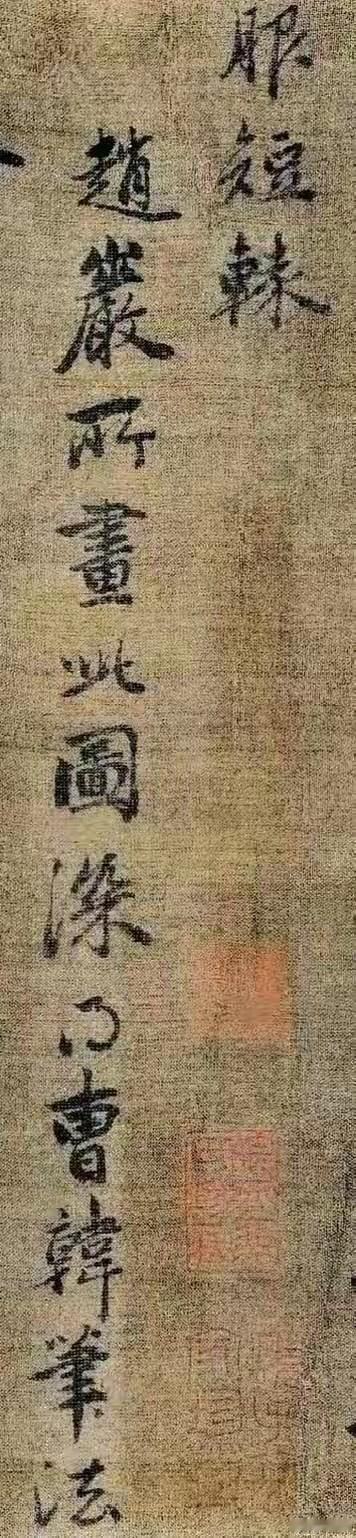 短
趙巖所畫此圖深得曹韓筆法